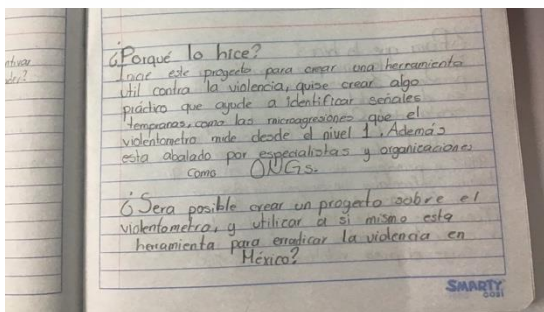 ntivar
der?
¿Porqué lo hice?
Inicie este progecto para crear una herramienta
util contra la violencia, quise crear algo
práctico que ayude a identificar señales
tempranas, como las microagresiones que el
violentometro mide desde el nivel 1. Además
esta abalado por especialistas y organicaciones
como ONGs.
¿Sera posible crear un progecto sobre el
violentometro, y utilicar a si mismo esta
herramienta para erradicar la violencia en
México?
SMARTY